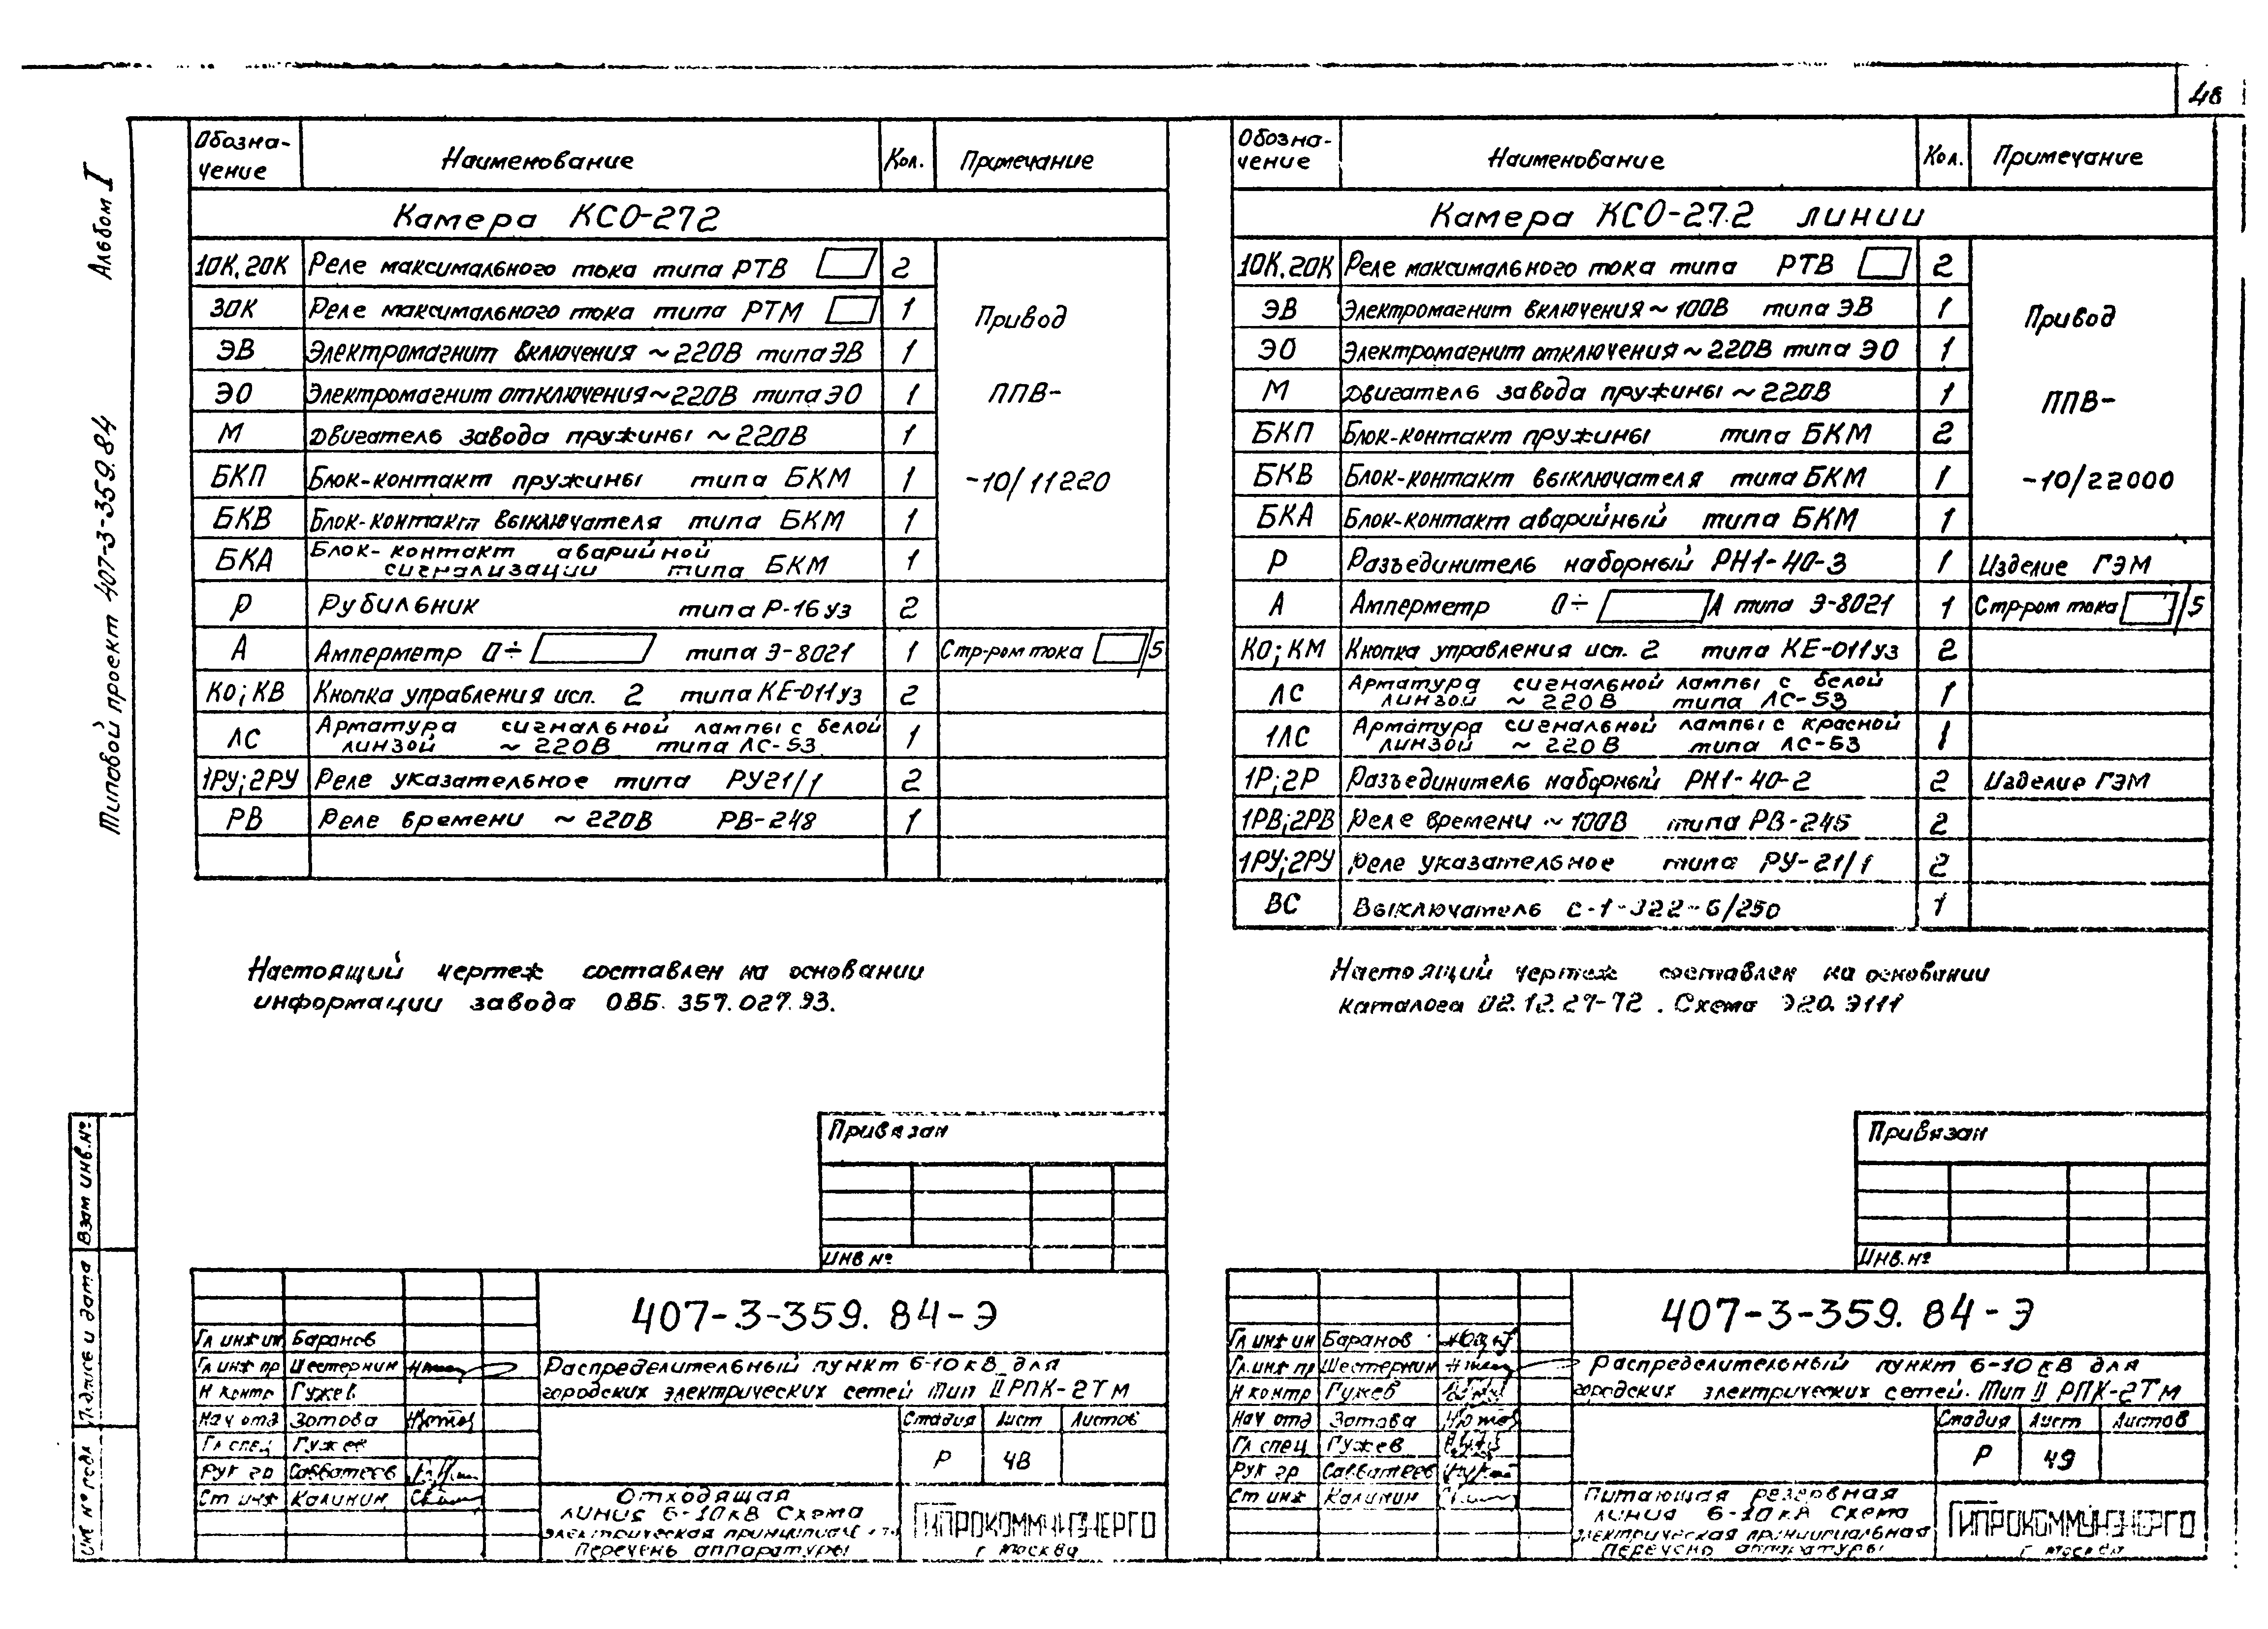 48
Альбом I
Типовой проект 407-3-359.84
Взам инв.№
Подпись и дата
Обозна-
чение
Наименование
Кол.
Примечание
Камера КСО-272
1ОК,2ОК Реле максимального тока типа РТВ 2
3ОК Реле максимального тока типа РТМ 1
ЭВ Электромагнит включения ~220В типа ЭВ 1
ЭО Электромагнит отключения ~220В типа ЭО 1
М Двигатель завода пружины ~220В 1
БКП Блок-контакт пружины типа БКМ 1
БКВ Блок-контакт выключателя типа БКМ 1
БКА Блок-контакт аварийной
сигнализации типа БКМ 1
Привод
ППВ-
-10/11220
Р Рубильник типа Р-16уз 2
А Амперметр 0÷ типа Э-8021 1 Стр-ром тока /5
КО;КВ Кнопка управления исп. 2 типа КЕ-011уз 2
ЛС Арматура сигнальной лампы с белой
линзой ~220В типа ЛС-53 1
1РУ;2РУ Реле указательное типа РУ21/1 2
РВ Реле времени ~220В РВ-248 1
Настоящий чертеж составлен на основании
информации завода ОВБ.357.027.93.
Привязан
Инв №
407-3-359.84-Э
Гл инж ин Баранов
Гл инж пр Шестернин
Н контр Гужев
Нач отд Зотова
Гл спец Гужев
Рук гр Савватеев
Ст инж Калинин
Распределительный пункт 6-10кВ для
городских электрических сетей Тип II РПК-2ТМ
Стадия Лист Листов
Р 48
Отходящая
линия 6-10кВ Схема
электрическая
Перечень аппаратуры
ГИПРОКОММУНЭНЕРГО
г Москва
Обозна-
чение
Наименование
Кол.
Примечание
Камера КСО-272 линии
1ОК,2ОК Реле максимального тока типа РТВ 2
ЭВ Электромагнит включения ~100В типа ЭВ 1
ЭО Электромагнит отключения ~220В типа ЭО 1
М Двигатель завода пружины ~220В 1
БКП Блок-контакт пружины типа БКМ 2
БКВ Блок-контакт выключателя типа БКМ 1
БКА Блок-контакт аварийный типа БКМ 1
Привод
ППВ-
-10/22000
Р Разъединитель наборный РН1-40-3 1 Изделие ГЭМ
А Амперметр 0÷ А типа Э-8021 1 Стр-ром тока /5
КО;КМ Кнопка управления исп. 2 типа КЕ-011уз 2
ЛС Арматура сигнальной лампы с белой
линзой ~220В типа ЛС-53 1
1ЛС Арматура сигнальной лампы с красной
линзой ~220В типа ЛС-53 1
1Р;2Р Разъединитель наборный РН1-40-2 2 Изделие ГЭМ
1РВ;2РВ Реле времени ~100В типа РВ-245 2
1РУ;2РУ Реле указательное типа РУ-21/1 2
ВС Выключатель С-1-322-6/250 1
Настоящий чертеж составлен на основании
каталога 02.12.27-72. Схема
Привязан
Инв.№
407-3-359.84-Э
Гл инж ин Баранов
Гл.инж пр Шестернин
Н контр Гужев
Нач отд Зотова
Гл спец Гужев
Рук гр Савватеев
Ст инж Калинин
Распределительный пункт 6-10кВ для
городских электрических сетей. Тип II РПК-2ТМ
Стадия Лист Листов
Р 49
Питающая резервная
линия 6-10кВ Схема
электрическая принципиальная
Перечень аппаратуры
ГИПРОКОММУНЭНЕРГО
г Москва